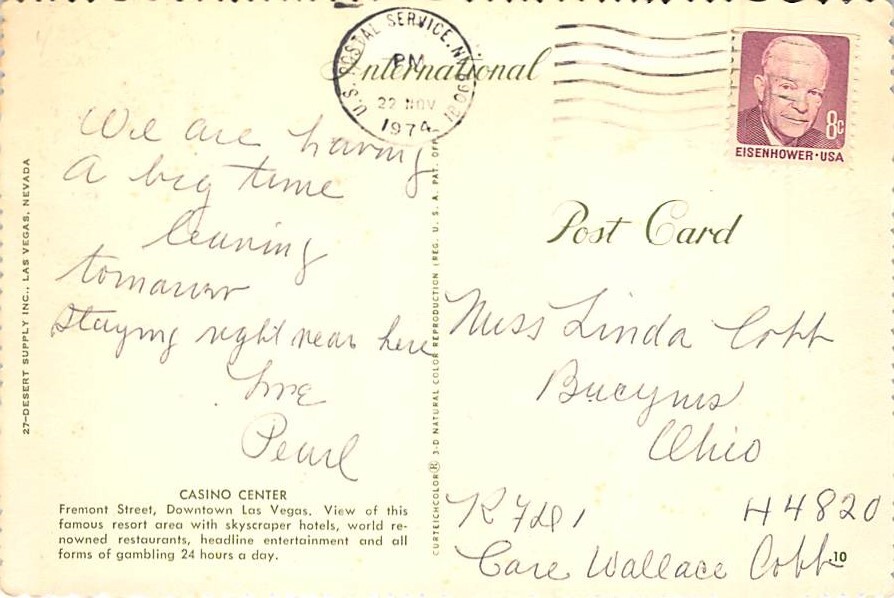 U.S. POSTAL SERVICE, NV 890
PM
22 NOV
1974
International
8c
EISENHOWER·USA
Post Card
We are having
A big time
leaving
tomarrow
staying right near here
Love
Pearl
Miss Linda Cobb
Bucyrus
Ohio
R Fd 1 44820
Care Wallace Cobb
10
CASINO CENTER
Fremont Street, Downtown Las Vegas. View of this
famous resort area with skyscraper hotels, world re-
nowned restaurants, headline entertainment and all
forms of gambling 24 hours a day.
27—DESERT SUPPLY INC., LAS VEGAS, NEVADA
CURTEICHCOLOR® 3-D NATURAL COLOR REPRODUCTION (REG. U. S. A. PAT. OFF.